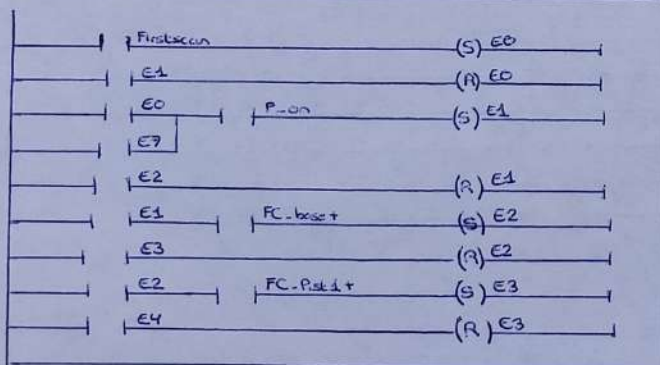 Firstscan (S) E0
E1 (R) E0
E0 P_on (S) E1
E7
E2 (R) E1
E1 FC_base+ (S) E2
E3 (R) E2
E2 FC_Pist1+ (S) E3
E4 (R) E3